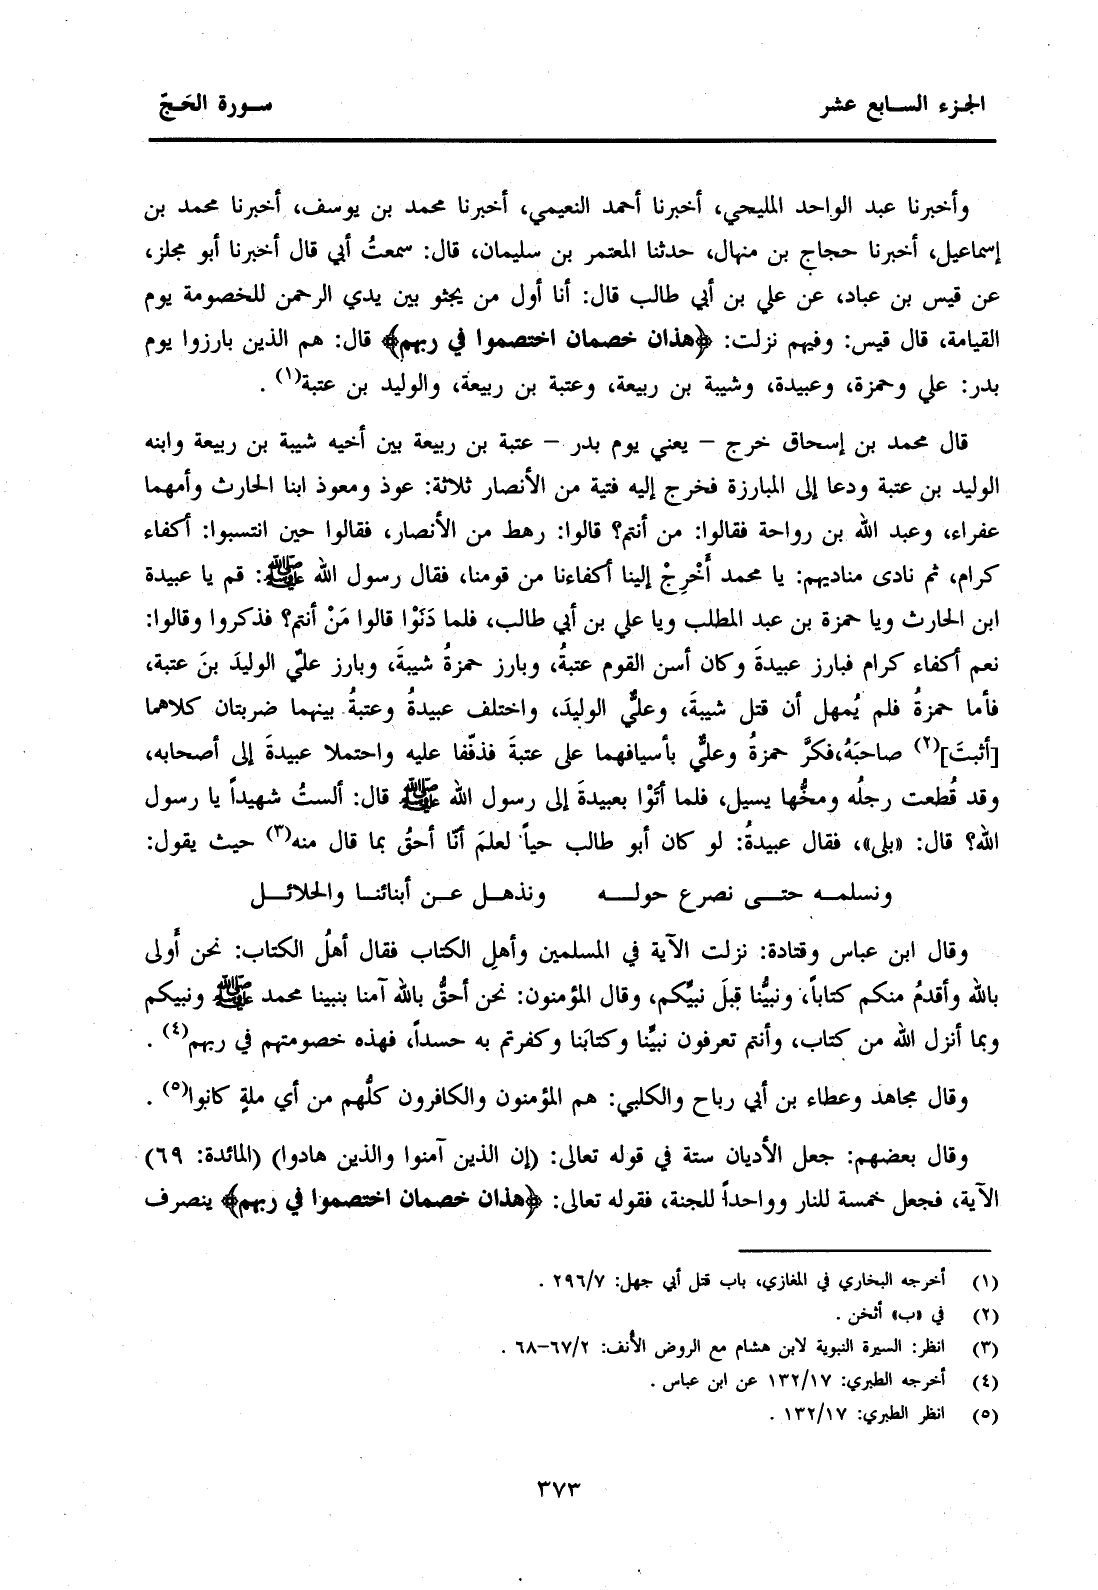 الجزء السابع عشر
سورة الحَجّ
وأخبرنا عبد الواحد المليحي، أخبرنا أحمد النعيمي، أخبرنا محمد بن يوسف، أخبرنا محمد بن
إسماعيل، أخبرنا حجاج بن منهال، حدثنا المعتمر بن سليمان، قال: سمعتُ أبي قال أخبرنا أبو مجلز،
عن قيس بن عباد، عن علي بن أبي طالب قال: أنا أول من يجثو بين يدي الرحمن للخصومة يوم
القيامة، قال قيس: وفيهم نزلت: ﴿هذان خصمان اختصموا في ربهم﴾ قال: هم الذين بارزوا يوم
بدر: علي وحمزة، وعبيدة، وشيبة بن ربيعة، وعتبة بن ربيعة، والوليد بن عتبة(١) .
قال محمد بن إسحاق خرج – يعني يوم بدر – عتبة بن ربيعة بين أخيه شيبة بن ربيعة وابنه
الوليد بن عتبة ودعا إلى المبارزة فخرج إليه فتية من الأنصار ثلاثة: عوذ ومعوذ ابنا الحارث وأمهما
عفراء، وعبد الله بن رواحة فقالوا: من أنتم؟ قالوا: رهط من الأنصار، فقالوا حين انتسبوا: أكفاء
كرام، ثم نادى مناديهم: يا محمد أَخْرِجْ إلينا أكفاءنا من قومنا، فقال رسول الله ﷺ: قم يا عبيدة
ابن الحارث ويا حمزة بن عبد المطلب ويا علي بن أبي طالب، فلما دَنَوْا قالوا مَنْ أنتم؟ فذكروا وقالوا:
نعم أكفاء كرام فبارز عبيدةَ وكان أسن القوم عتبةُ، وبارز حمزةُ شيبةَ، وبارز عليّ الوليدَ بنَ عتبة،
فأما حمزةُ فلم يُمهل أن قتل شيبةَ، وعليٌّ الوليدَ، واختلف عبيدةُ وعتبةُ بينهما ضربتان كلاهما
[أثبتَ](٢) صاحبَهُ،فكرَّ حمزةُ وعليٌّ بأسيافهما على عتبةَ فذفّفا عليه واحتملا عبيدةَ إلى أصحابه،
وقد قُطعت رجلُه ومخُّها يسيل، فلما أتَوْا بعبيدةَ إلى رسول الله ﷺ قال: ألستُ شهيداً يا رسول
الله؟ قال: «بلى»، فقال عبيدةُ: لو كان أبو طالب حياً لعلمَ أنّا أحقُ بما قال منه(٣) حيث يقول:
ونسلمه حتى نصرع حوله ونذهل عن أبنائنا والحلائل
وقال ابن عباس وقتادة: نزلت الآية في المسلمين وأهلِ الكتاب فقال أهلُ الكتاب: نحن أَولى
بالله وأقدمُ منكم كتاباً، ونبيُّنا قبلَ نبيِّكم، وقال المؤمنون: نحن أحقُّ بالله آمنا بنبينا محمد ﷺ ونبيكم
وبما أنزل الله من كتاب، وأنتم تعرفون نبيَّنا وكتابَنا وكفرتم به حسداً، فهذه خصومتهم في ربهم(٤) .
وقال مجاهد وعطاء بن أبي رباح والكلبي: هم المؤمنون والكافرون كلُّهم من أي ملةٍ كانوا(٥) .
وقال بعضهم: جعل الأديان ستة في قوله تعالى: (إن الذين آمنوا والذين هادوا) (المائدة: ٦٩)
الآية، فجعل خمسة للنار وواحداً للجنة، فقوله تعالى: ﴿هذان خصمان اختصموا في ربهم﴾ ينصرف
(١) أخرجه البخاري في المغازي، باب قتل أبي جهل: ٢٩٦/٧ .
(٢) في «ب» أثخن .
(٣) انظر: السيرة النبوية لابن هشام مع الروض الأنف: ٦٧/٢–٦٨ .
(٤) أخرجه الطبري: ١٣٢/١٧ عن ابن عباس .
(٥) انظر الطبري: ١٣٢/١٧ .
٣٧٣